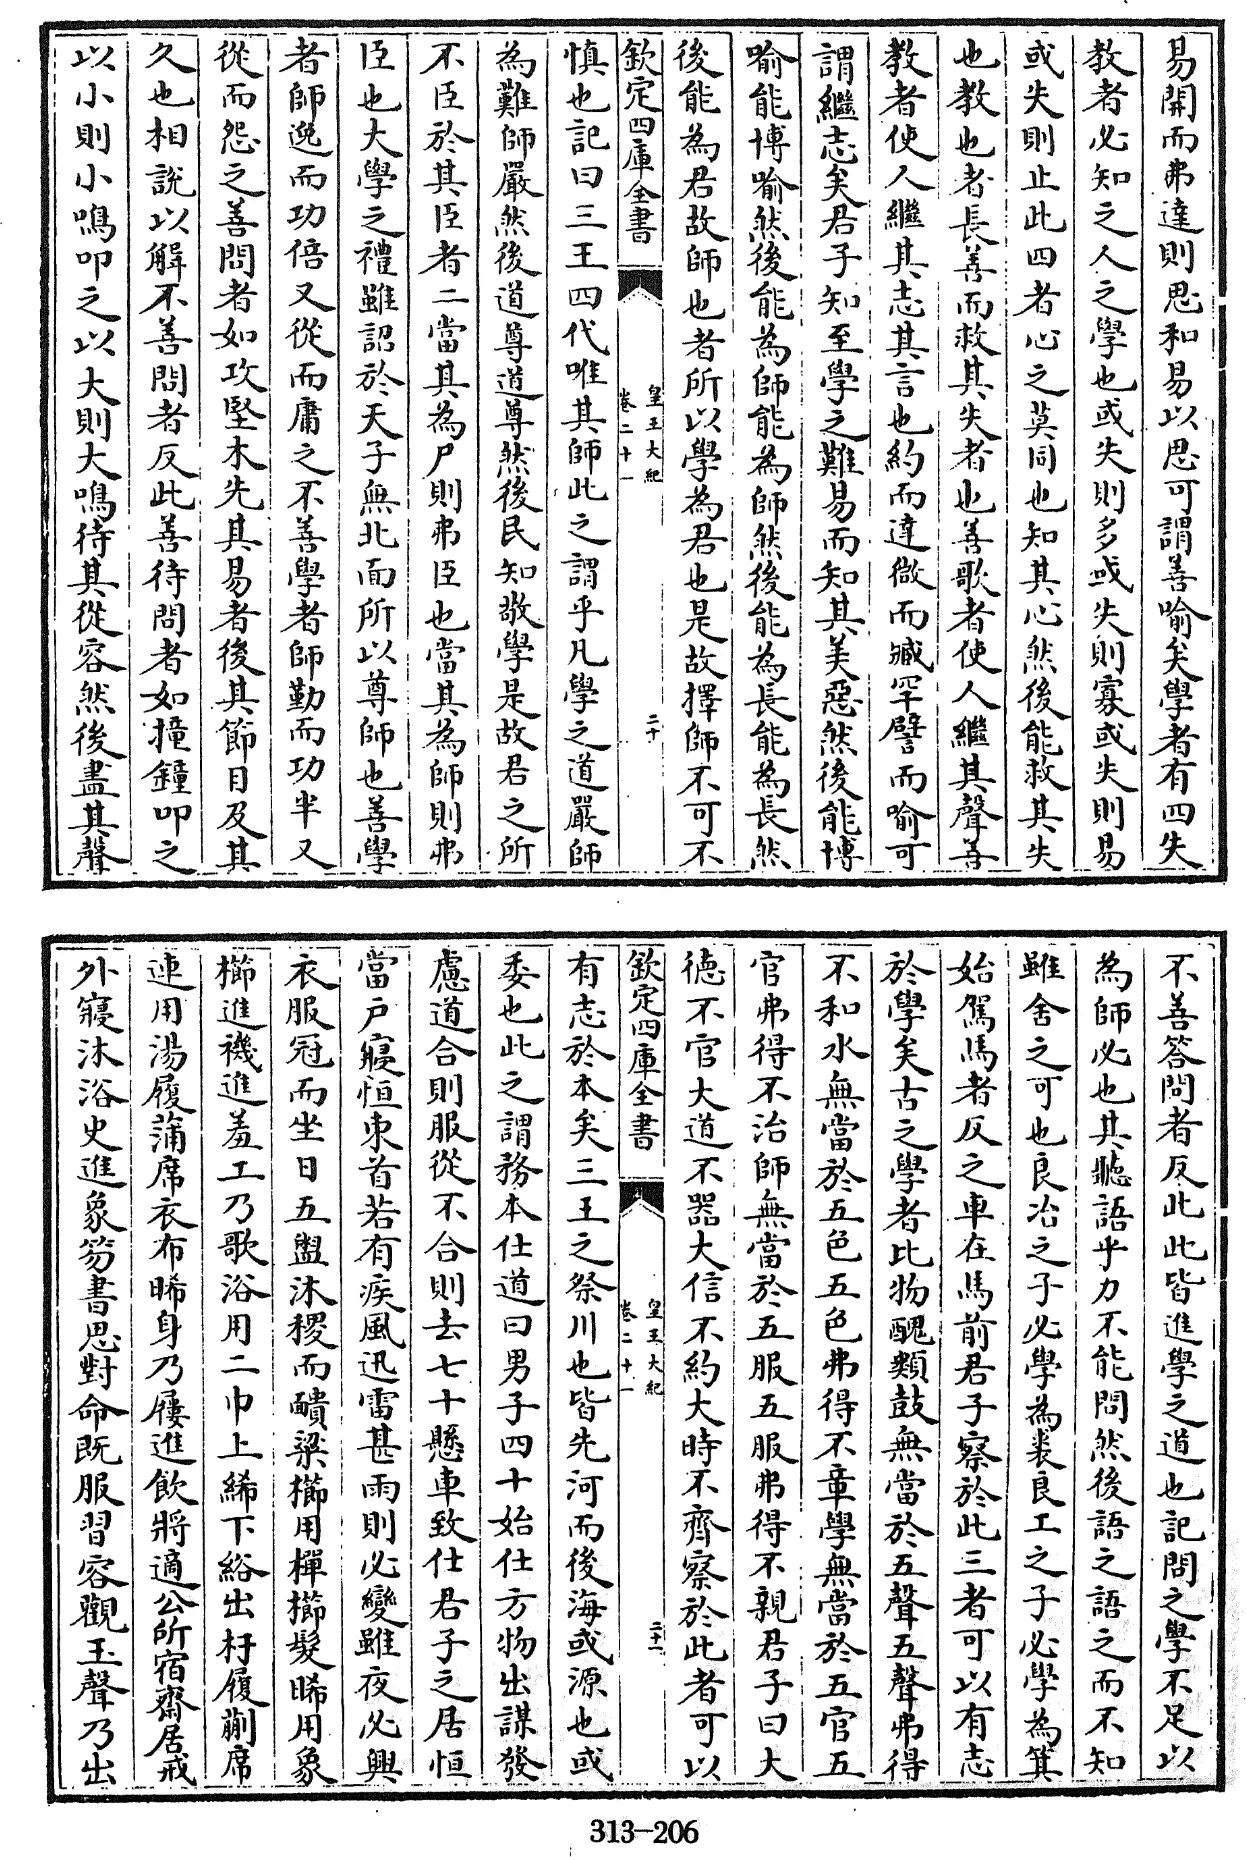 易開而弗達則思和易以思可謂善喻矣學者有四失
教者必知之人之學也或失則多或失則寡或失則易
或失則止此四者心之莫同也知其心然後能救其失
也教也者長善而救其失者也善歌者使人繼其聲善
教者使人繼其志其言也約而達微而臧罕譬而喻可
謂繼志矣君子知至學之難易而知其美惡然後能博
喻能博喻然後能為師能為師然後能為長能為長然
後能為君故師也者所以學為君也是故擇師不可不
欽定四庫全書
皇王大紀
卷二十一
二十
慎也記曰三王四代唯其師此之謂乎凡學之道嚴師
為難師嚴然後道尊道尊然後民知敬學是故君之所
不臣於其臣者二當其為尸則弗臣也當其為師則弗
臣也大學之禮雖詔於天子無北面所以尊師也善學
者師逸而功倍又從而庸之不善學者師勤而功半又
從而怨之善問者如攻堅木先其易者後其節目及其
久也相說以解不善問者反此善待問者如撞鐘叩之
以小則小鳴叩之以大則大鳴待其從容然後盡其聲
不善答問者反此此皆進學之道也記問之學不足以
為師必也其聽語乎力不能問然後語之語之而不知
雖舍之可也良冶之子必學為裘良工之子必學為箕
始駕馬者反之車在馬前君子察於此三者可以有志
於學矣古之學者比物醜類鼓無當於五聲五聲弗得
不和水無當於五色五色弗得不章學無當於五官五
官弗得不治師無當於五服五服弗得不親君子曰大
德不官大道不器大信不約大時不齊察於此者可以
欽定四庫全書
皇王大紀
卷二十一
二十一
有志於本矣三王之祭川也皆先河而後海或源也或
委也此之謂務本仕道曰男子四十始仕方物出謀發
慮道合則服從不合則去七十懸車致仕君子之居恒
當戶寢恒東首若有疾風迅雷甚雨則必變雖夜必興
衣服冠而坐日五盥沐稷而靧粱櫛用樿櫛髮晞用象
櫛進禨進羞工乃歌浴用二巾上絺下綌出杅履蒯席
連用湯履蒲席衣布晞身乃屨進飲將適公所宿齋居戒
外寢沐浴史進象笏書思對命既服習容觀玉聲乃出
313-206